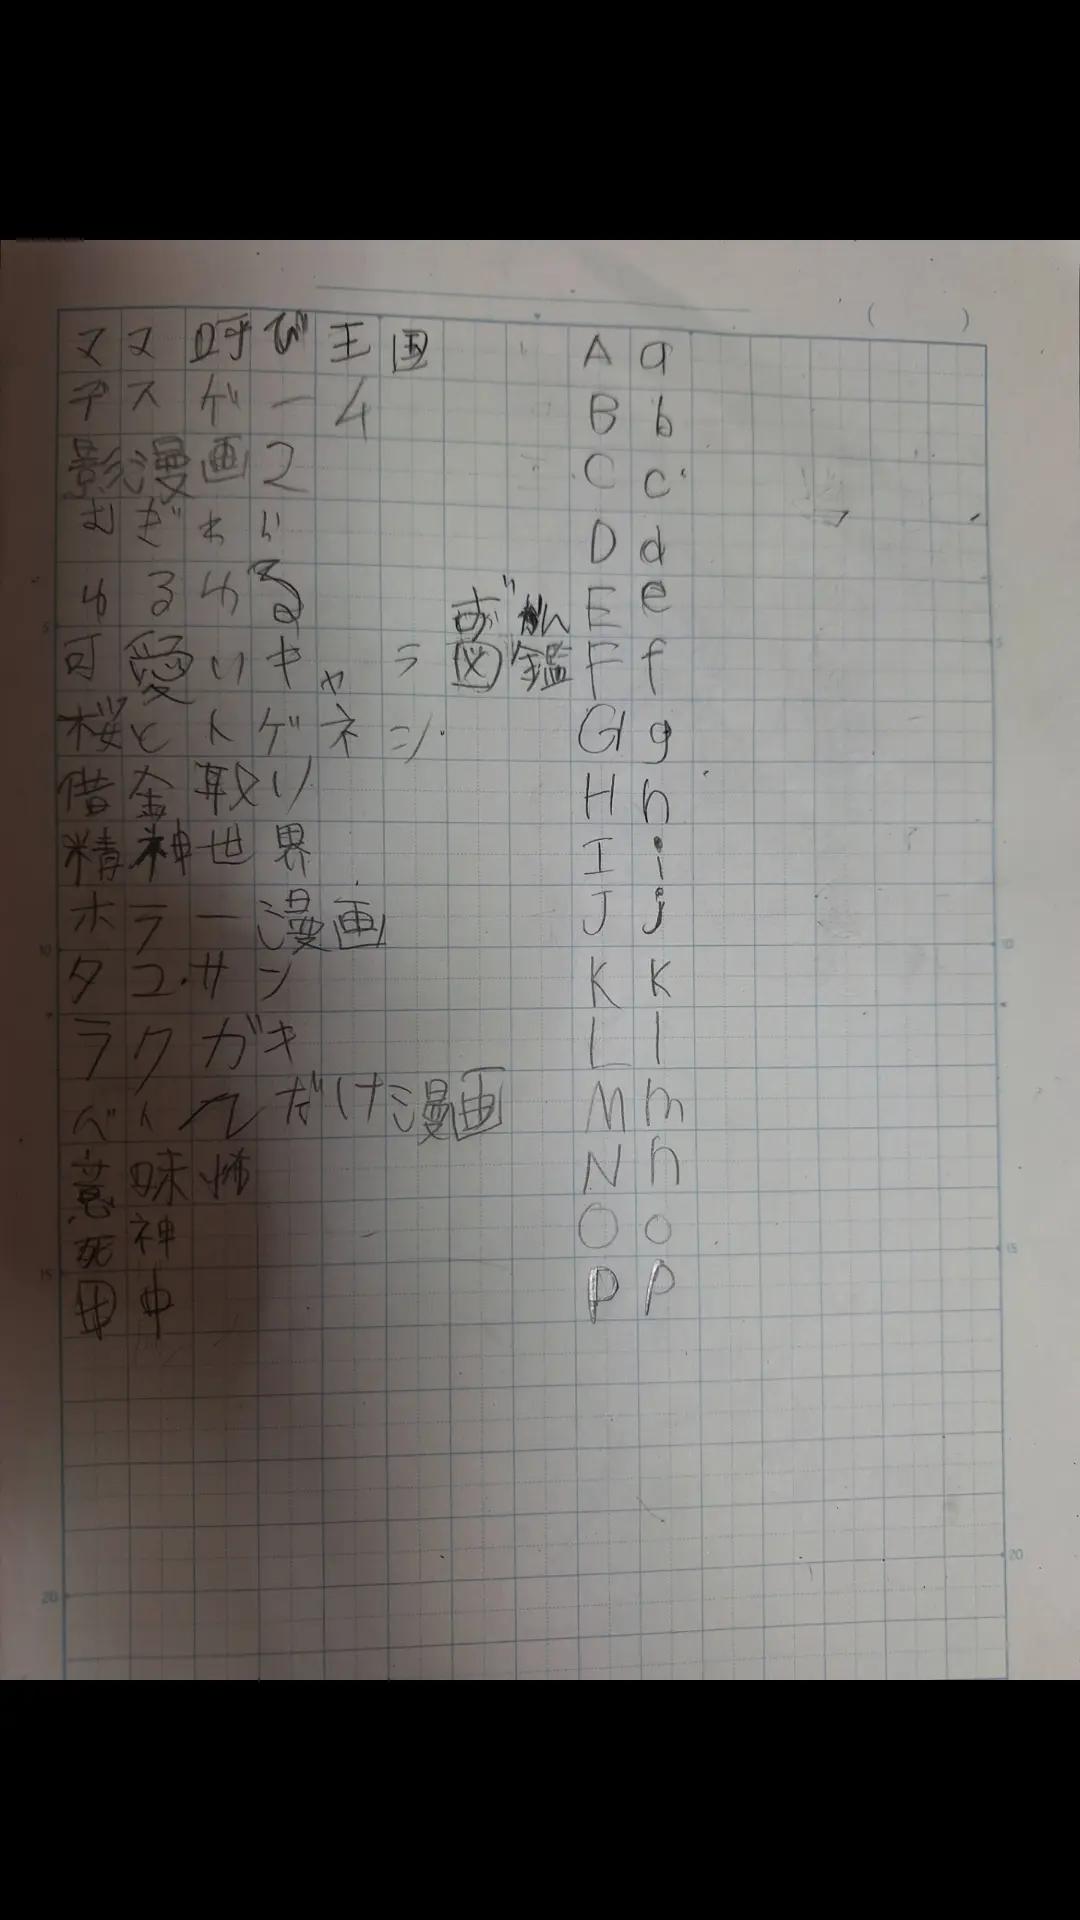 ママ呼び王国 A a
デスゲーム B b
影漫画2 C c
むぎわら D d
ゆるゆる ずかん E e
可愛いキャラ図鑑 F f
桜とトゲネシ G g
借金取り H h
精神世界 I i
ホラー漫画 J j
タコ.サン K k
ラクガキ L l
だけ漫画 M m
意味怖 N n
死神 O o
田中 P p
( )
5
10
15
20
5
10
15
20